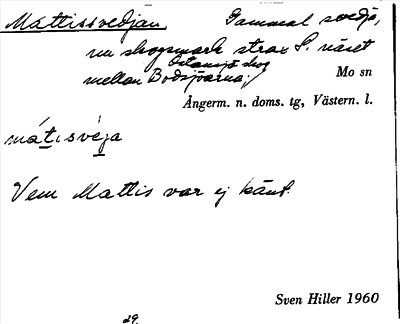 Mattissvedjan. Gammal svedja,
nu skogsmark strax S. näset
Östansjö skog
mellan Bodsjöarna. Mo sn
Ångerm. n. doms. tg, Västern. l.
mátisvéja
Vem Mattis var ej känt.
Sven Hiller 1960
29.